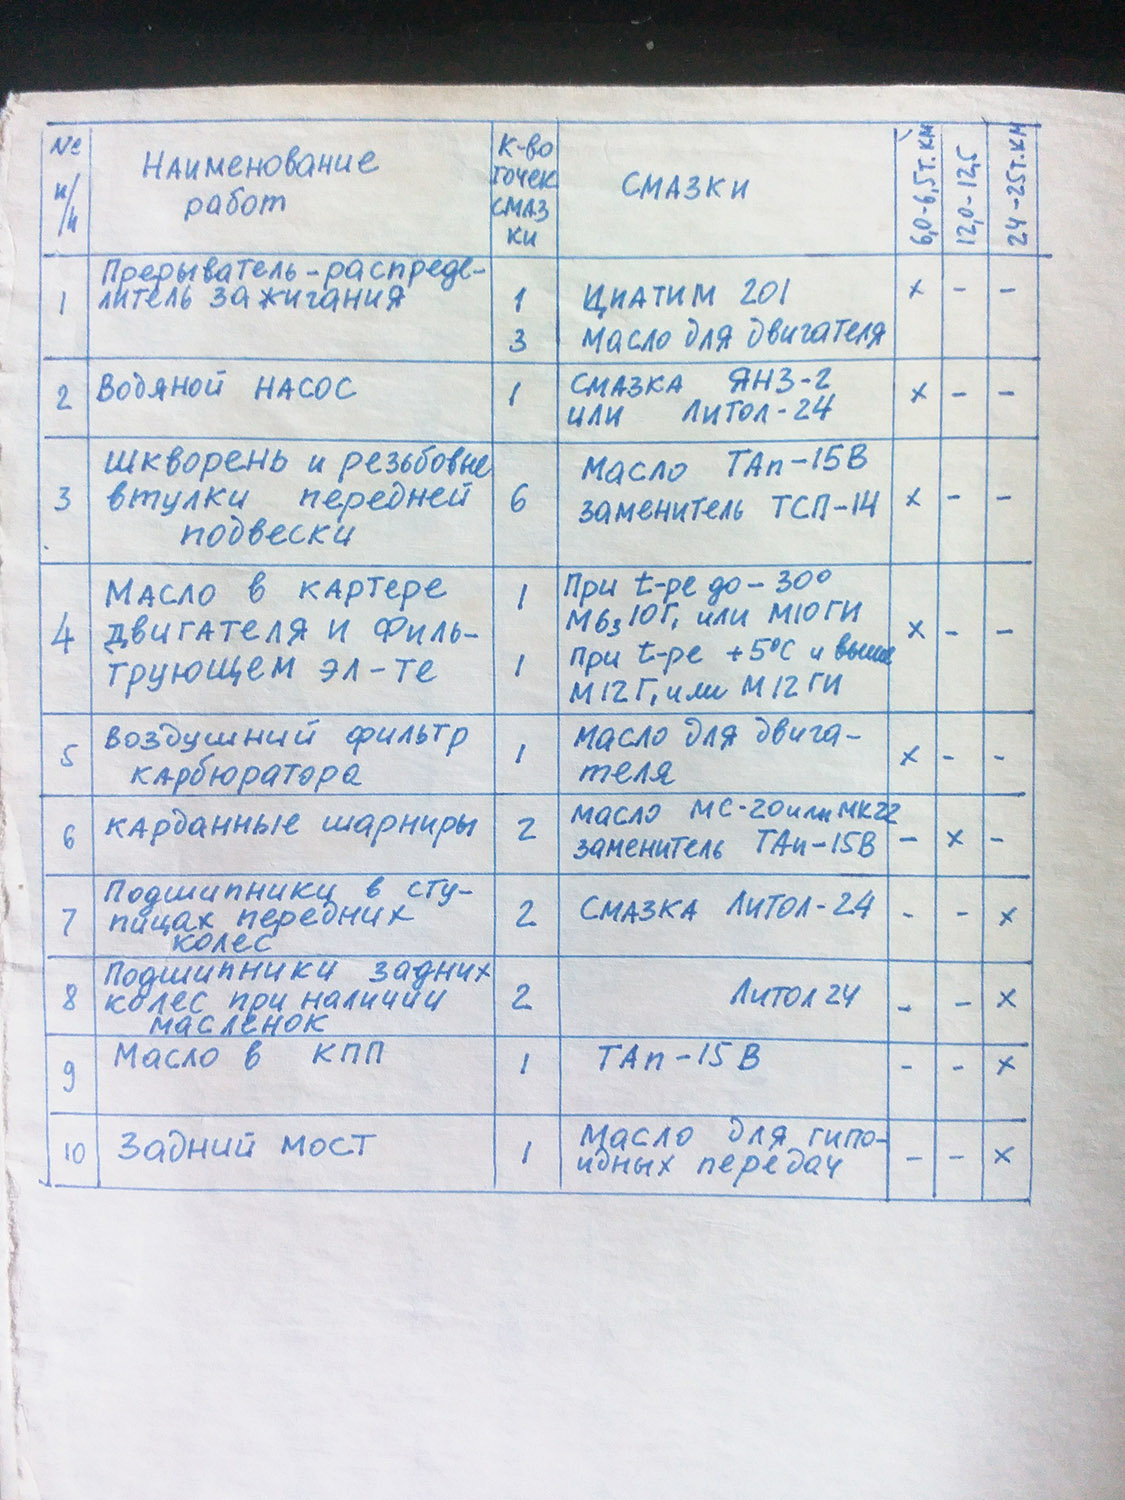 № п/п
Наименование
работ
К-во
точек
смаз
ки
СМАЗКИ
6,0-6,5т.км
12,0-12,5
24-25т.км
1
Прерыватель-распреде-
литель зажигания
1
3
ЦИАТИМ 201
Масло для двигателя
× - -
2
Водяной насос
1
СМАЗКА ЯНЗ-2
или Литол-24
× - -
3
Шкворень и резьбовые
втулки передней
подвески
6
Масло ТАп-15В
заменитель ТСП-14
× - -
4
Масло в картере
двигателя и филь-
трующем эл-те
1
1
При t-ре до -30°
М6з10Г, или М10ГИ
При t-ре +5°С и выше
М12Г, или М12ГИ
× - -
5
Воздушний фильтр
карбюратора
1
Масло для двига-
теля
× - -
6
Карданные шарниры
2
Масло МС-20 или МК22
заменитель ТАп-15В
- × -
7
Подшипники в сту-
пицах передних
колес
2
СМАЗКА Литол-24
- - ×
8
Подшипники задних
колес при наличии
масленок
2
Литол 24
- - ×
9
Масло в КПП
1
ТАп-15В
- - ×
10
Задний мост
1
Масло для гипо-
идных передач
- - ×